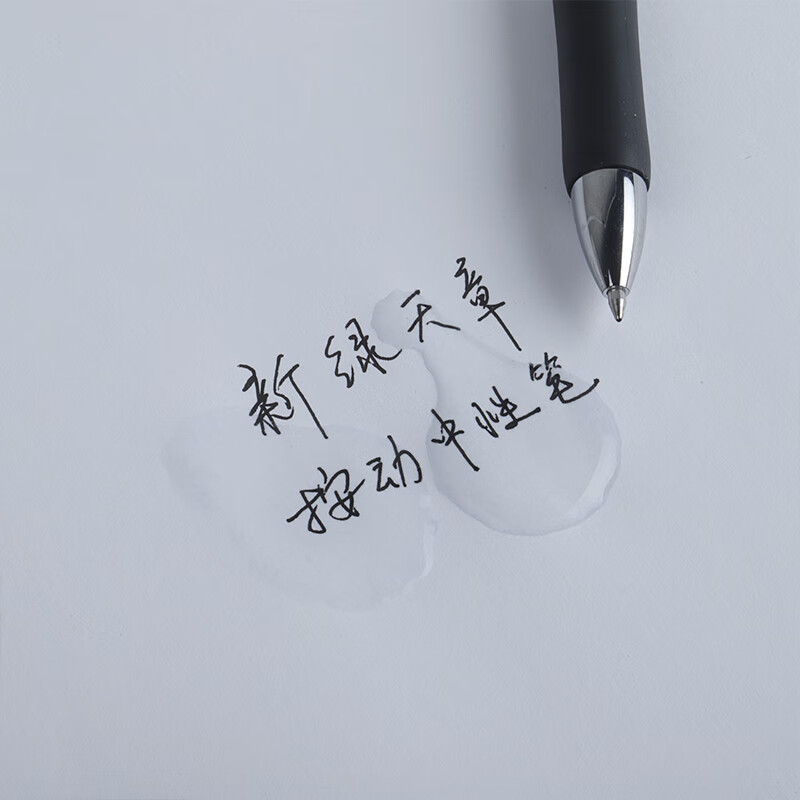 新绿天章
按动中性笔